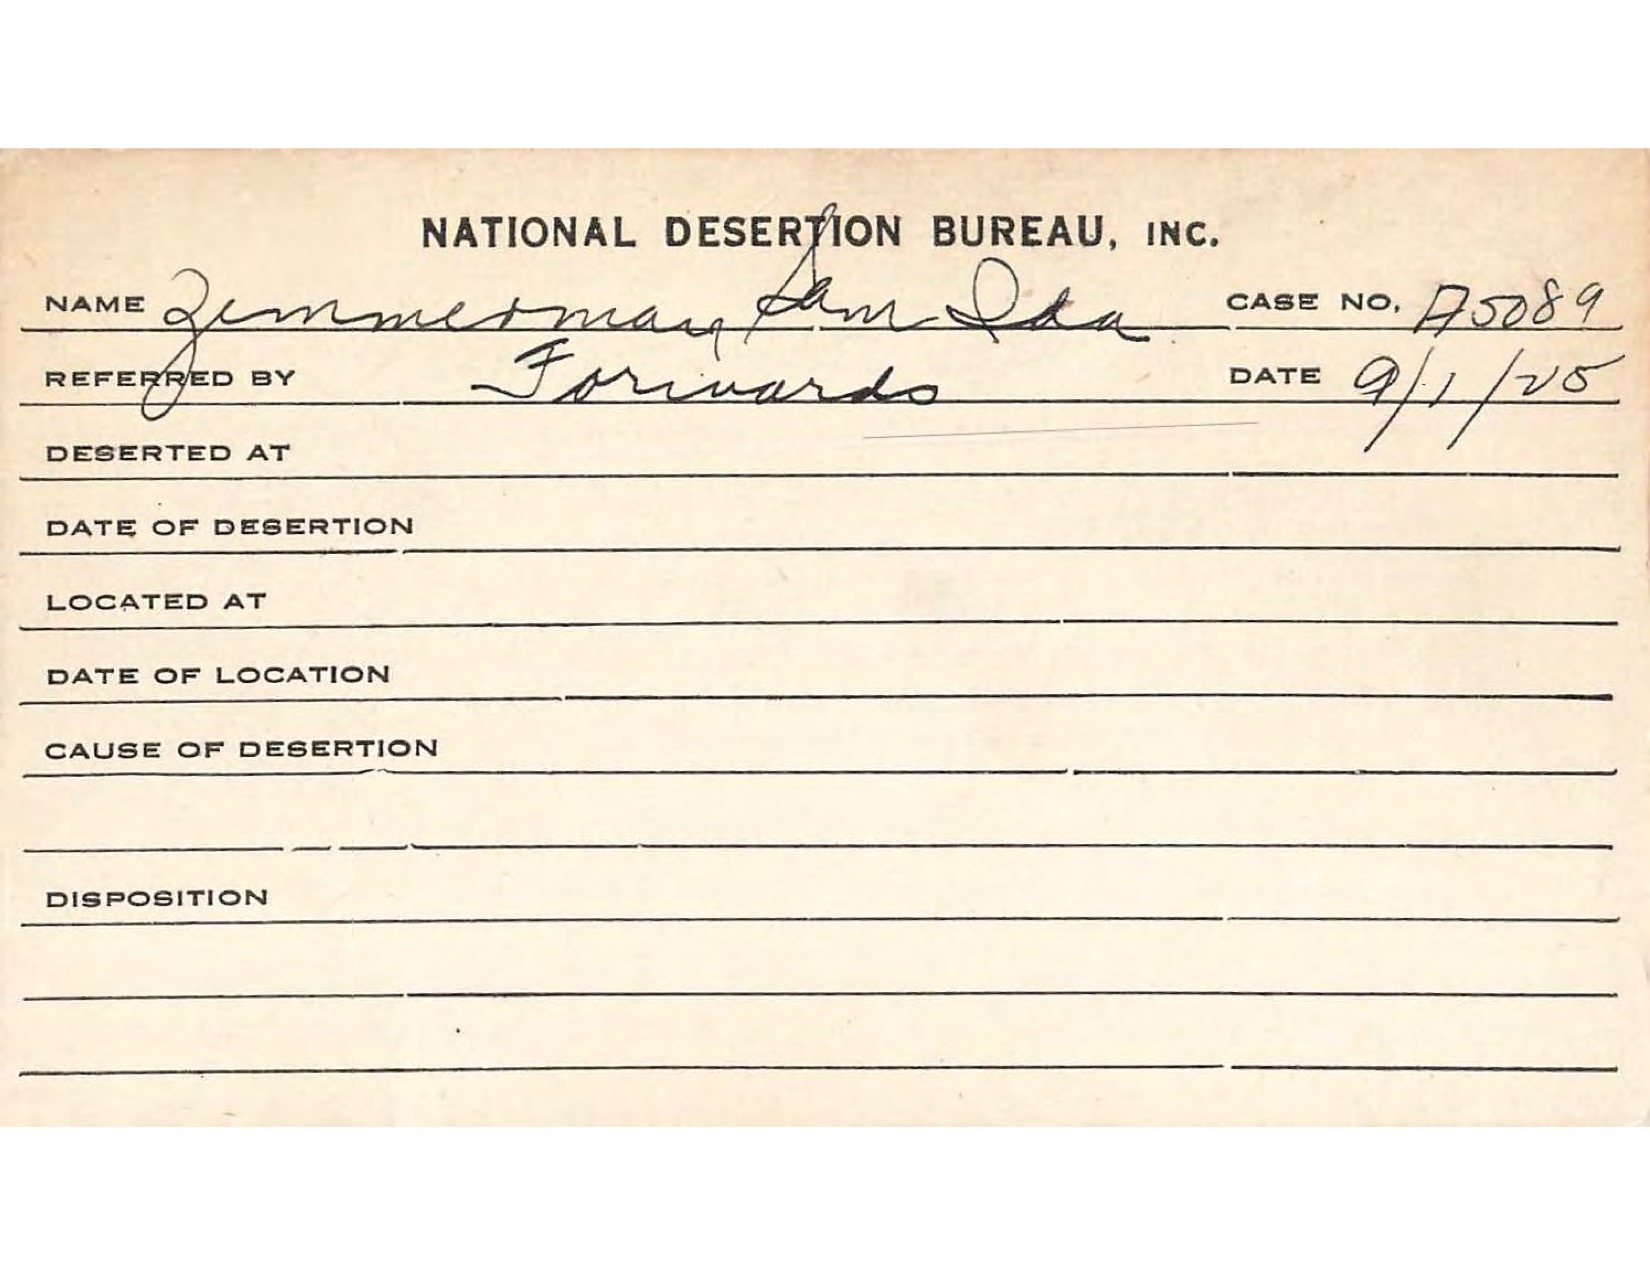 NATIONAL DESERTION BUREAU, INC.
NAME Zimmerman, Sam Ida CASE NO. A5089
REFERRED BY Forwards DATE 9/1/25
DESERTED AT
DATE OF DESERTION
LOCATED AT
DATE OF LOCATION
CAUSE OF DESERTION
DISPOSITION